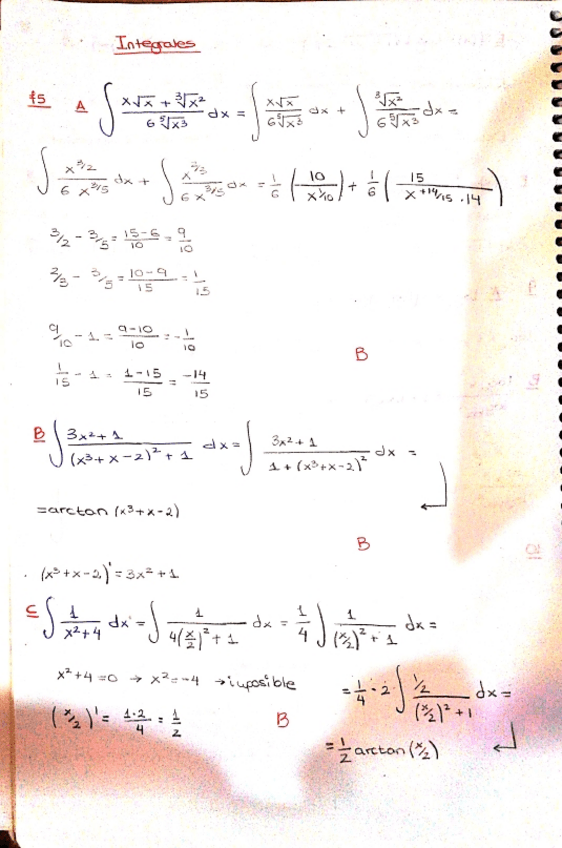 Integrales
#5 A ∫ (x√x + ³√x²)/(6 ⁵√x³) dx = ∫ x√x/(6 ⁵√x³) dx + ∫ ³√x²/(6 ⁵√x³) dx =
∫ x^(3/2)/(6 x^(3/5)) dx + ∫ x^(2/3)/(6 x^(3/5)) dx = 1/6 (10/x^(1/10)) + 1/6 (15/(x^(+14/15) · 14))
3/2 - 3/5 = (15-6)/10 = 9/10
2/3 - 3/5 = (10-9)/15 = 1/15
9/10 - 1 = (9-10)/10 = -1/10
B
1/15 - 1 = (1-15)/15 = -14/15
B ∫ (3x²+1)/((x³+x-2)²+1) dx = ∫ (3x²+1)/(1+(x³+x-2)²) dx =
= arctan (x³+x-2)
B
(x³+x-2)' = 3x²+1
C ∫ 1/(x²+4) dx = ∫ 1/(4(x/2)²+1) dx = 1/4 ∫ 1/((x/2)²+1) dx =
x²+4=0 → x²=-4 → imposible
= 1/4 · 2 ∫ (1/2)/((x/2)²+1) dx =
(x/2)' = (1·2)/4 = 1/2
B
= 1/2 arctan (x/2)